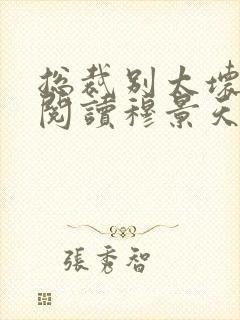 总裁别太坏
閱讀穆景天
張秀智